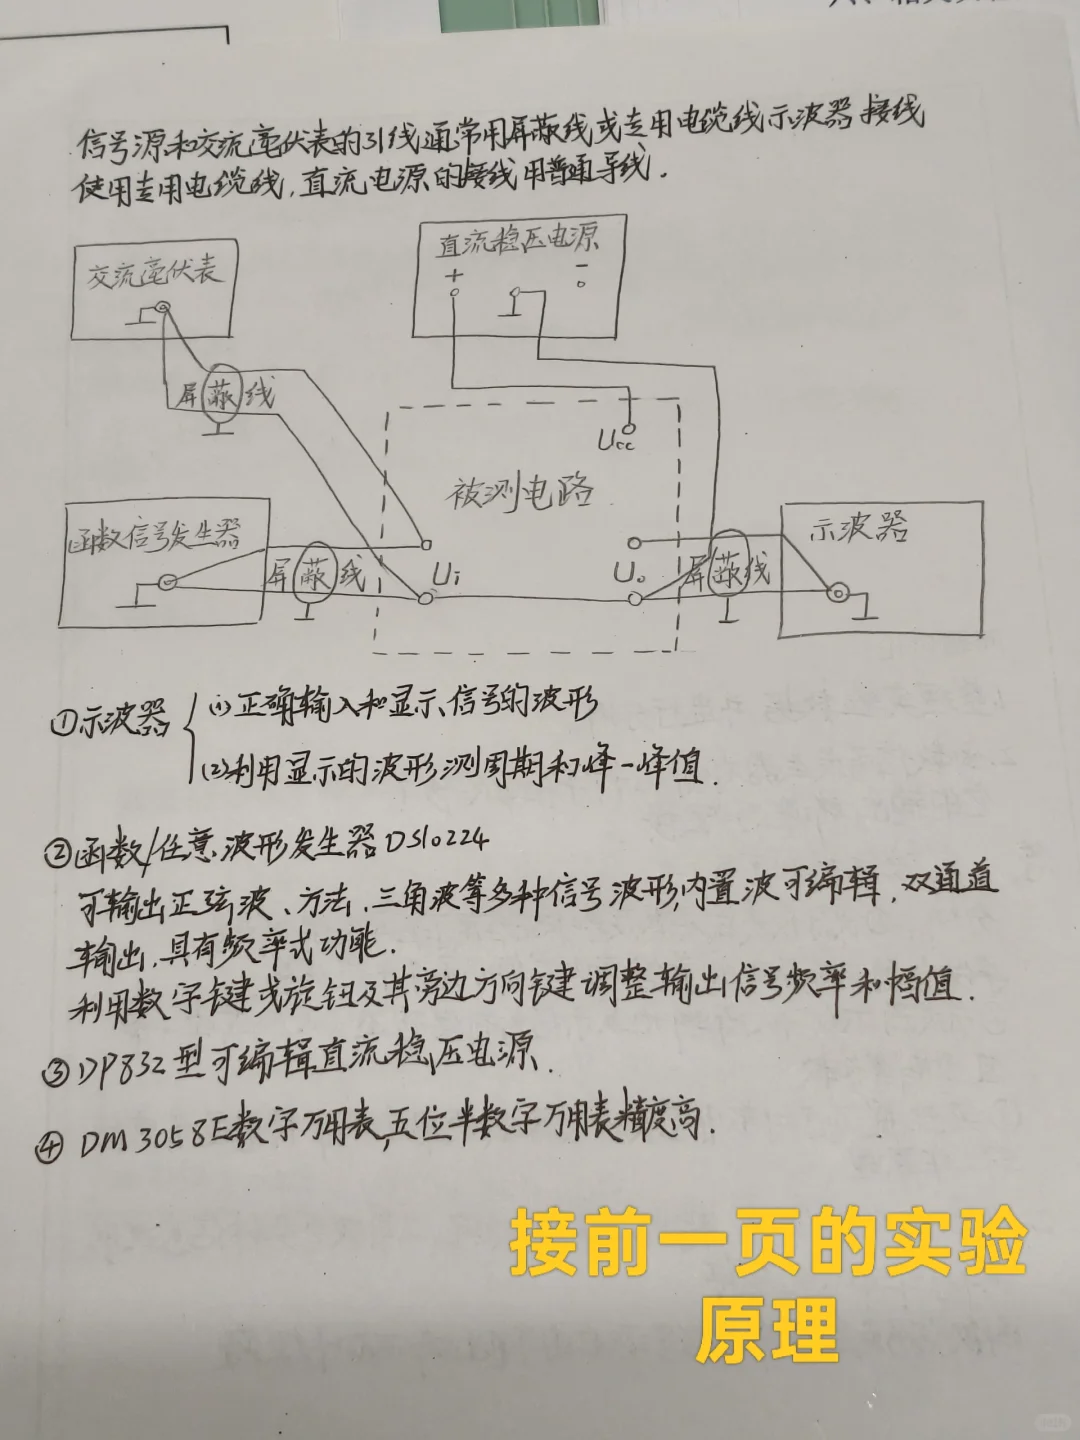 信号源和交流毫伏表的引线通常用屏蔽线或专用电缆线示波器接线
使用专用电缆线,直流电源的接线用普通导线.
交流毫伏表
直流稳压电源
+
-
屏蔽线
Ucc
被测电路
函数信号发生器
屏蔽线
Ui
Uo
屏蔽线
示波器
①示波器
(1)正确输入和显示信号的波形
(2)利用显示的波形测周期和峰-峰值.
②函数/任意波形发生器DS10224
可输出正弦波、方法、三角波等多种信号波形,内置波可编辑,双通道
输出,具有频率式功能.
利用数字键或旋钮及其旁边方向键调整输出信号频率和幅值.
③DP832型可编辑直流稳压电源.
④DM3058E数字万用表,五位半数字万用表精度高.
接前一页的实验
原理